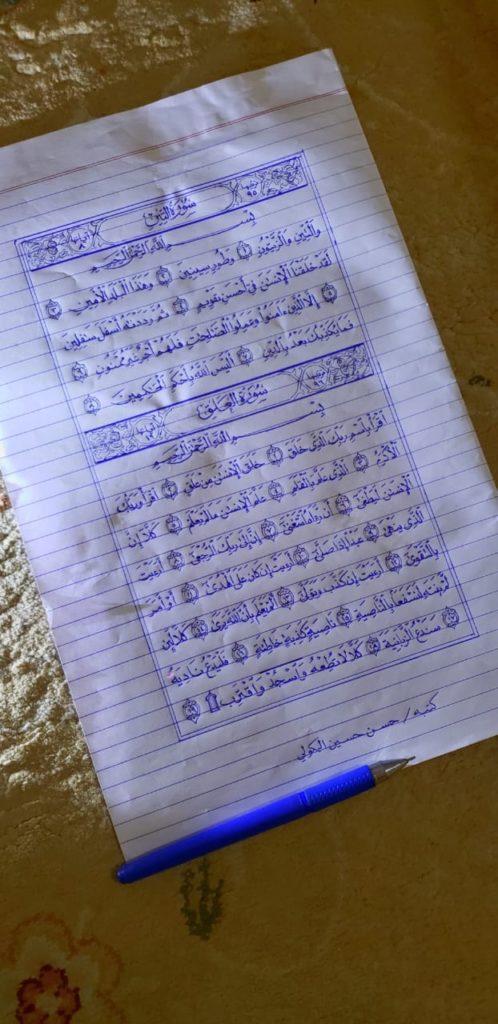 سُورَةُ التِّينِ
بِسْمِ اللَّهِ الرَّحْمَٰنِ الرَّحِيمِ
وَالتِّينِ وَالزَّيْتُونِ ١ وَطُورِ سِينِينَ ٢ وَهَٰذَا الْبَلَدِ الْأَمِينِ ٣
لَقَدْ خَلَقْنَا الْإِنسَٰنَ فِي أَحْسَنِ تَقْوِيمٍ ٤ ثُمَّ رَدَدْنَٰهُ أَسْفَلَ سَٰفِلِينَ
٥ إِلَّا الَّذِينَ ءَامَنُوا وَعَمِلُوا الصَّٰلِحَٰتِ فَلَهُمْ أَجْرٌ غَيْرُ مَمْنُونٍ ٦
فَمَا يُكَذِّبُكَ بَعْدُ بِالدِّينِ ٧ أَلَيْسَ اللَّهُ بِأَحْكَمِ الْحَٰكِمِينَ ٨
سُورَةُ الْعَلَقِ
بِسْمِ اللَّهِ الرَّحْمَٰنِ الرَّحِيمِ
اقْرَأْ بِاسْمِ رَبِّكَ الَّذِي خَلَقَ ١ خَلَقَ الْإِنسَٰنَ مِنْ عَلَقٍ ٢ اقْرَأْ وَرَبُّكَ
الْأَكْرَمُ ٣ الَّذِي عَلَّمَ بِالْقَلَمِ ٤ عَلَّمَ الْإِنسَٰنَ مَا لَمْ يَعْلَمْ ٥ كَلَّا إِنَّ
الْإِنسَٰنَ لَيَطْغَىٰ ٦ أَن رَّءَاهُ اسْتَغْنَىٰ ٧ إِنَّ إِلَىٰ رَبِّكَ الرُّجْعَىٰ ٨ أَرَءَيْتَ
الَّذِي يَنْهَىٰ ٩ عَبْدًا إِذَا صَلَّىٰ ١٠ أَرَءَيْتَ إِن كَانَ عَلَى الْهُدَىٰ ١١ أَوْ أَمَرَ
بِالتَّقْوَىٰ ١٢ أَرَءَيْتَ إِن كَذَّبَ وَتَوَلَّىٰ ١٣ أَلَمْ يَعْلَم بِأَنَّ اللَّهَ يَرَىٰ ١٤ كَلَّا لَئِن
لَّمْ يَنتَهِ لَنَسْفَعًا بِالنَّاصِيَةِ ١٥ نَاصِيَةٍ كَٰذِبَةٍ خَاطِئَةٍ ١٦ فَلْيَدْعُ نَادِيَهُ
١٧ سَنَدْعُ الزَّبَانِيَةَ ١٨ كَلَّا لَا تُطِعْهُ وَاسْجُدْ وَاقْتَرِب ۩ ١٩
كتبه / حسن حسين